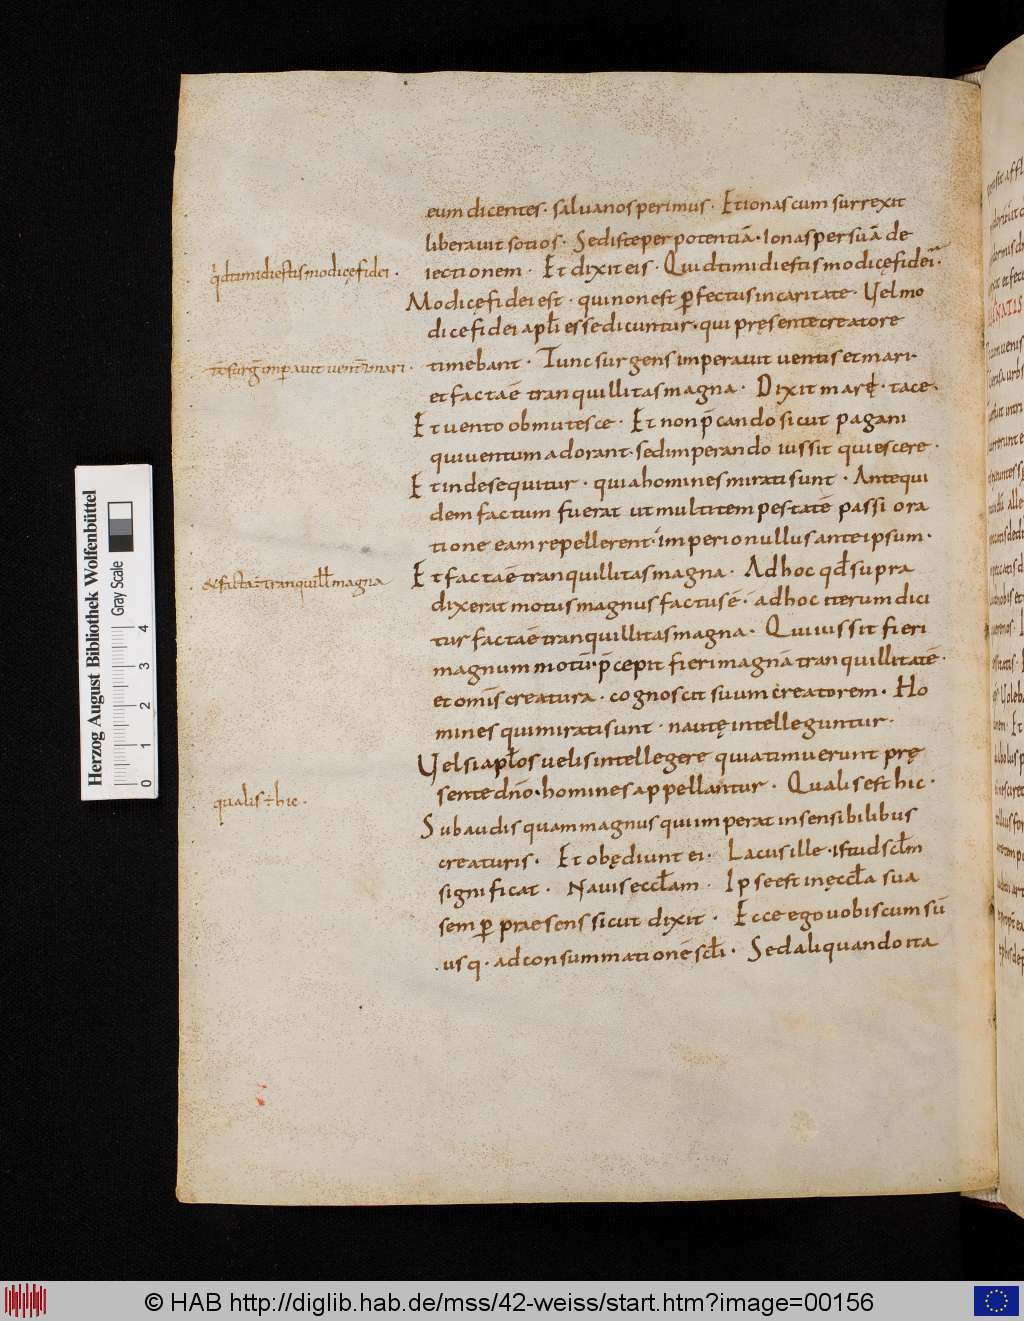 eum dicentes· salua nos perimus· Et ionas cum surrexit
liberauit sotios· Sed iste per potentiā· ionas per suā de
iectionem· Et dixit eis· Quid timidi estis modicę fidei·
qd timidi estis modicę fidei·
Modicę fidei est· qui non est ꝑfectus in caritate· Vel mo
dice fidei apłi esse dicuntur· qui pręsente creatore
timebant· Tunc surgens imperauit uentis et mari·
et facta ē tranquillitas magna· Dixit mare· tace·
Et uento obmutesce· Et non p̄cando sicut pagani
qui uentum adorant· sed imperando iussit quiescere·
Et inde sequitur· quia homines mirati sunt· Ante qui
dem factum fuerat ut multi tempestatē passi ora
tione eam repellerent· imperio nullus ante ipsum·
Et facta ē tranquillitas magna· Ad hoc qđ supra
et facta ÷ tranquilł magna
dixerat motus magnus factus ē· ad hoc iterum dici
tur facta ē tranquillitas magna· Qui iussit fieri
magnum motū· p̄cepit fieri magnā tranquillitatē·
et omīs creatura· cognoscit suum creatorem· Ho
mines qui mirati sunt· nautę intelleguntur·
Vel si apłos uelis intellegere quia timuerunt prę
sente dn̄o· homines appellantur· Qualis est hic·
qualis ÷ hic·
Subaudis quam magnus qui imperat insensibilibus
creaturis· Et obędiunt ei· Lacus ille· istud scłm
significat· Nauis eccłam· Ipse est in ęccła sua
semꝑ praesens sicut dixit· Ecce ego uobiscum sū
usq· ad consummationē scłi· Sed aliquando ita
Herzog August Bibliothek Wolfenbüttel
Gray Scale
0 1 2 3 4
© HAB http://diglib.hab.de/mss/42-weiss/start.htm?image=00156